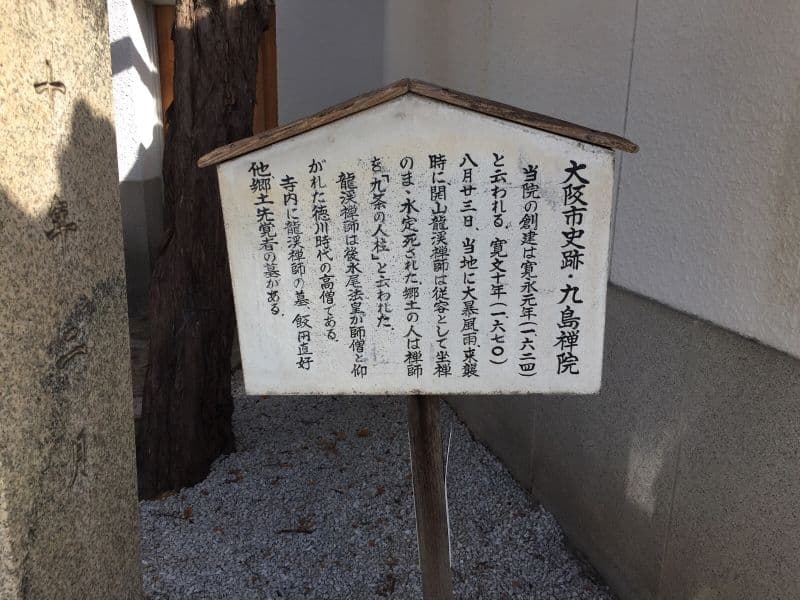 大阪市史跡・九島禅院
当院の創建は寛永元年(一六二四)
と云われる。寛文十年(一六七〇)
八月廿三日、当地に大暴風雨、来襲
時に、開山龍渓禅師は従容として坐禅
のま・水定死された。郷土の人は禅師
を「九条の人柱」と云われた。
龍渓禅師は後水尾法皇が師僧と仰
がれた徳川時代の高僧である。
寺内に龍渓禅師の墓 飯田直好
他、郷土先覚者の墓がある。